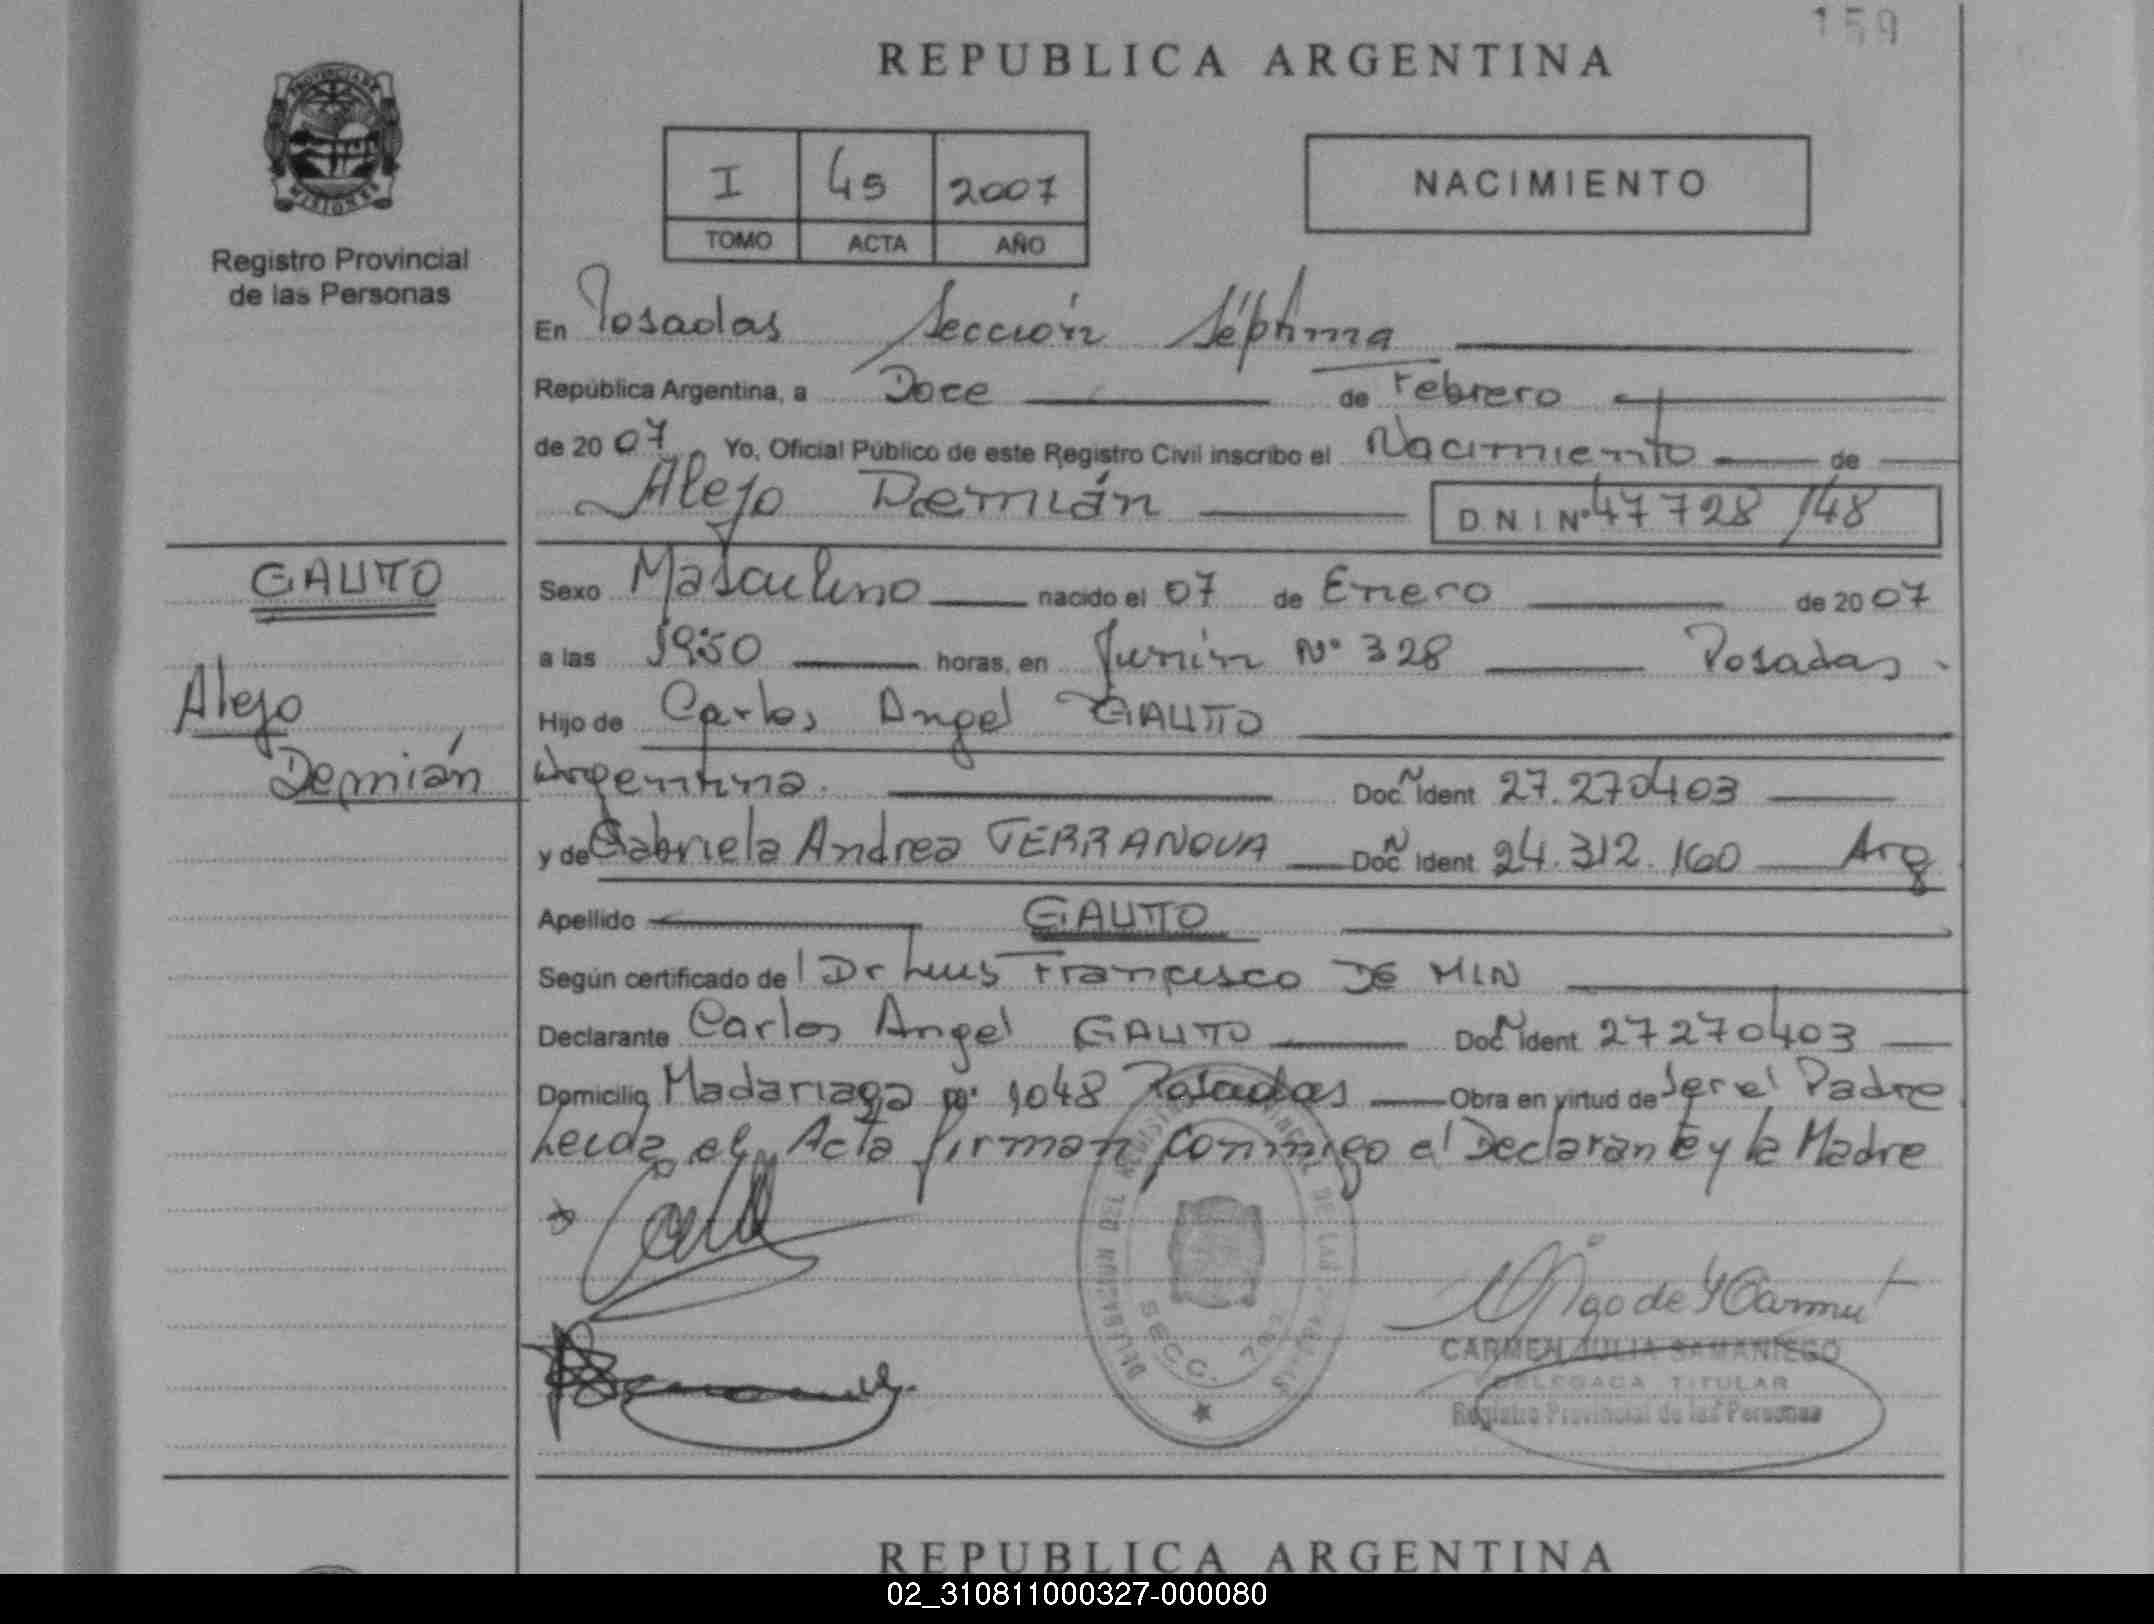 159
REPUBLICA ARGENTINA
PROVINCIA DE
MISIONES
Registro Provincial
de las Personas
I 45 2007
TOMO ACTA AÑO
NACIMIENTO
En Posadas Sección Séptima
República Argentina, a Doce de Febrero
de 2007 Yo, Oficial Público de este Registro Civil inscribo el Nacimiento de
Alejo Demián D N I Nº 47 728 148
GAUTO
Alejo
Demián
Sexo Masculino nacido el 07 de Enero de 2007
a las 19:50 horas, en Junín Nº 328 Posadas
Hijo de Carlos Angel GAUTO
Argentina. Doc. Ident 27.270403
y de Gabriela Andrea TERRANOVA Doc. Ident 24.312.160 Arg
Apellido GAUTO
Según certificado de l Dr Luis Francisco DE MLN
Declarante Carlos Angel GAUTO Doc. Ident 27270403
Domicilio Madariaga Nº 1048 Posadas Obra en virtud de Ser el Padre
Leida el Acta firman conmigo el Declarante y la Madre
SECC. 7
CARMEN JULIA SAMANIEGO
DELEGADA TITULAR
Registro Provincial de las Personas
REPUBLICA ARGENTINA
02_310811000327-000080